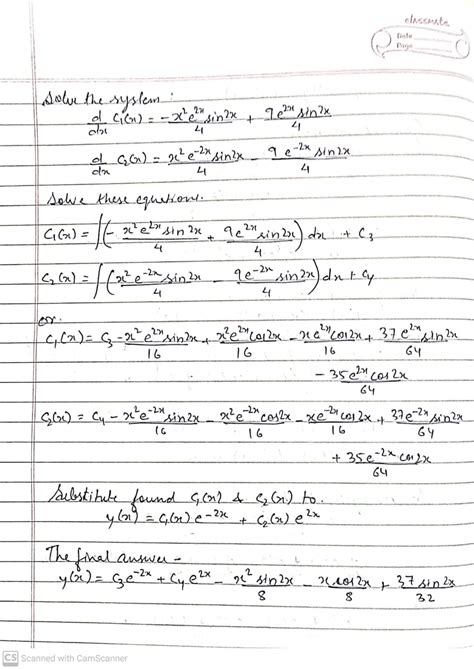 classmate
Date
Page
Solve the system :
d/dx C₁(x) = -x²e^{2x} sin2x/4 + 9e^{2x} sin2x/4
d/dx C₂(x) = x² e^{-2x} sin2x/4 - 9 e^{-2x} sin2x/4
Solve these equations.
C₁(x) = ∫(- x² e^{2x} sin2x/4 + 9e^{2x} sin2x/4) dx + C₃
C₂(x) = ∫(x² e^{-2x} sin2x/4 - 9e^{-2x} sin2x/4) dx + C₄
or.
C₁(x) = C₃ - x² e^{2x} sin2x/16 + x² e^{2x} cos2x/16 - x e^{2x} cos2x/16 + 37 e^{2x} sin2x/64
- 35e^{2x} cos2x/64
C₂(x) = C₄ - x² e^{-2x} sin2x/16 - x² e^{-2x} cos2x/16 - xe^{-2x} cos2x/16 + 37e^{-2x} sin2x/64
+ 35e^{-2x} cos2x/64
Substitute found C₁(x) & C₂(x) to.
y(x) = C₁(x) e^{-2x} + C₂(x) e^{2x}
The final answer -
y(x) = C₃e^{-2x} + C₄e^{2x} - x² sin2x/8 - x cos2x/8 + 37 sin2x/32
CS Scanned with CamScanner